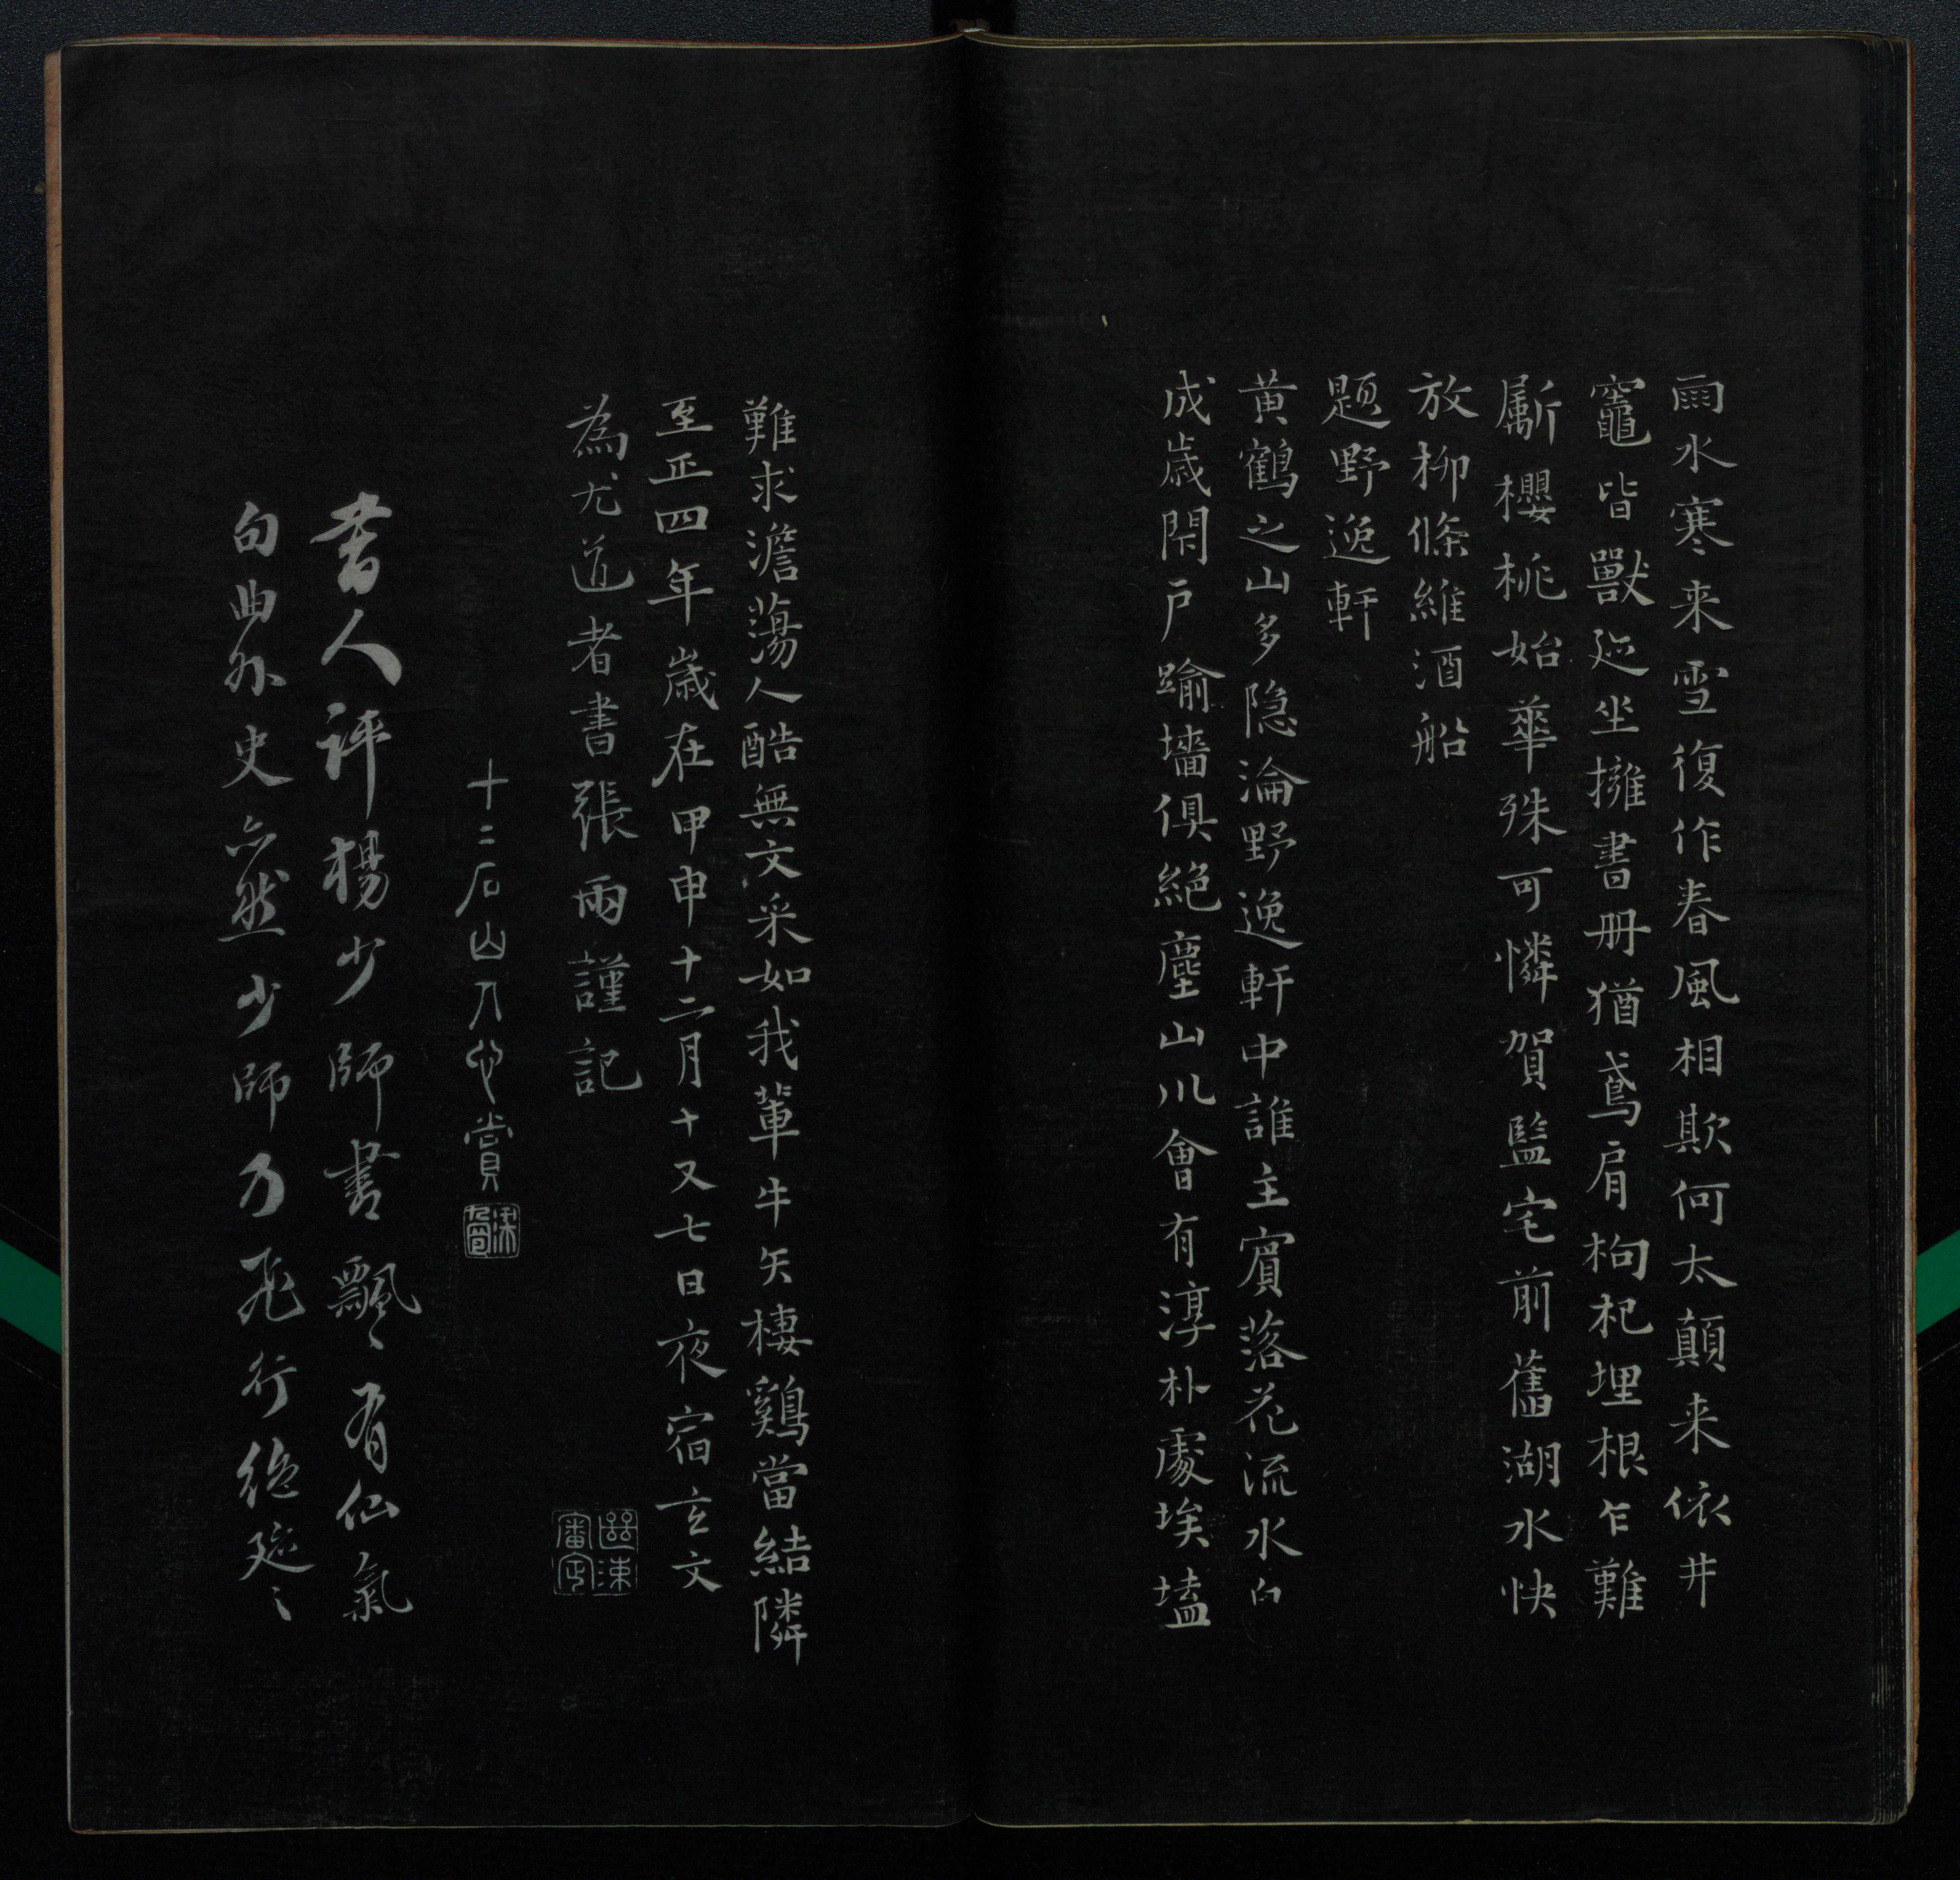 雨水寒来雪復作春風相欺何太顛来依井
竈皆獸迹坐擁書册猶鳶肩枸杞埋根乍難
斸櫻桃始華殊可憐賀監宅前舊湖水快
放柳條維酒船
題野逸軒
黄鶴之山多隐淪野逸軒中誰主賓落花流水白
成歲閑戶踰墻俱絶塵山川會有淳朴處埃壒
難求澹蕩人酷無文采如我輩牛矢棲鷄當結隣
至正四年歲在甲申十二月十又七日夜宿玄文
為尤道者書張雨謹記
十二石山人心賞
書人評楊少師書飄〻有仙氣
句曲外史亦然少師乃飛行絶迹〻